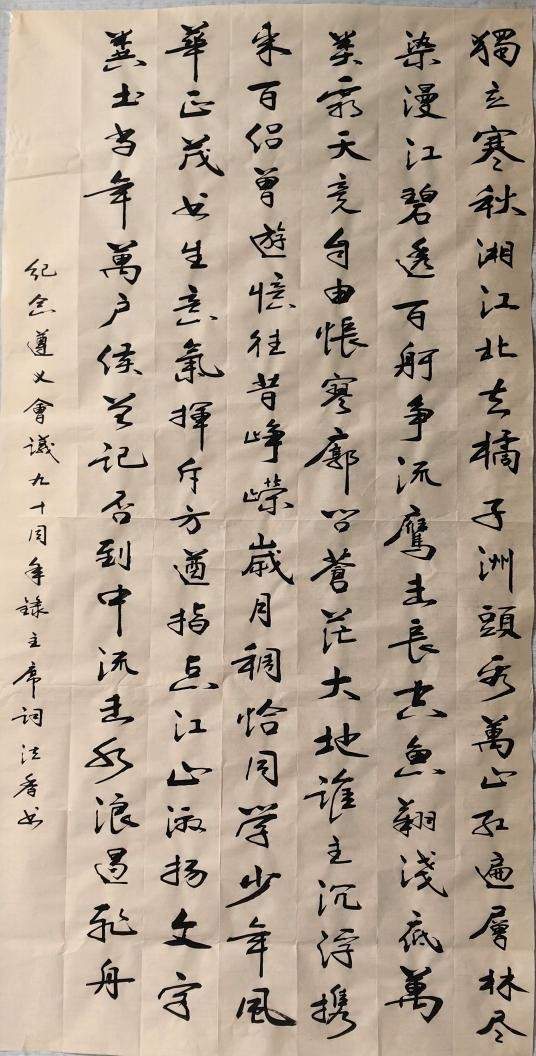 獨立寒秋湘江北去橘子洲頭看萬山红遍層林尽
染漫江碧透百舸争流鷹击長空魚翔淺底萬
类霜天竞自由悵寥廓问蒼茫大地誰主沉浮携
来百侣曾遊憶往昔峥嵘歲月稠恰同学少年风
華正茂书生意氣揮斥方遒指点江山激扬文字
粪土当年萬户侯曾記否到中流击水浪遏飛舟
纪念遵义會議九十周年録主席詞法香书